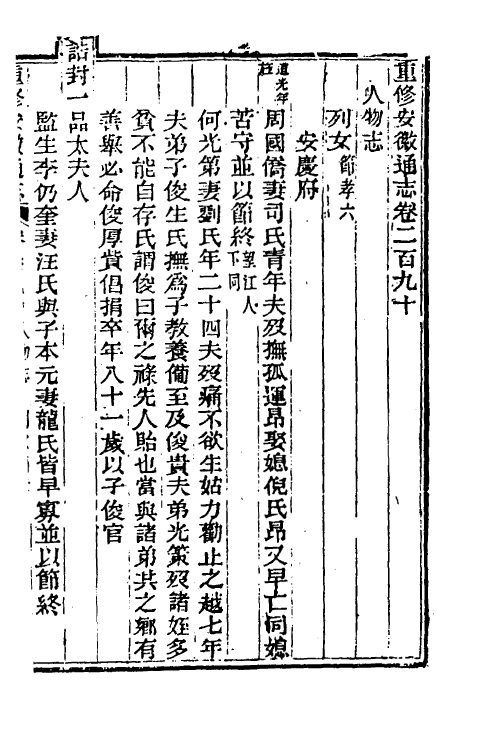 重修安徽通志卷二百九十
人物志
列女節孝六
安慶府
道光年
旌
周國僑妻司氏青年夫歿撫孤運昂娶媳倪氏昂又早亡同媳
苦守並以節終望江人下同
何光第妻劉氏年二十四夫歿痛不欲生姑力勸止之越七年
夫弟子俊生氏撫爲子教養備至及俊貴夫弟光策歿諸姪多
貧不能自存氏謂俊曰爾之祿先人貽也當與諸弟共之鄉有
善舉必命俊厚貲倡捐卒年八十一歲以子俊官
誥封一品太夫人
監生李仍奎妻汪氏與子本元妻龍氏皆早寡並以節終